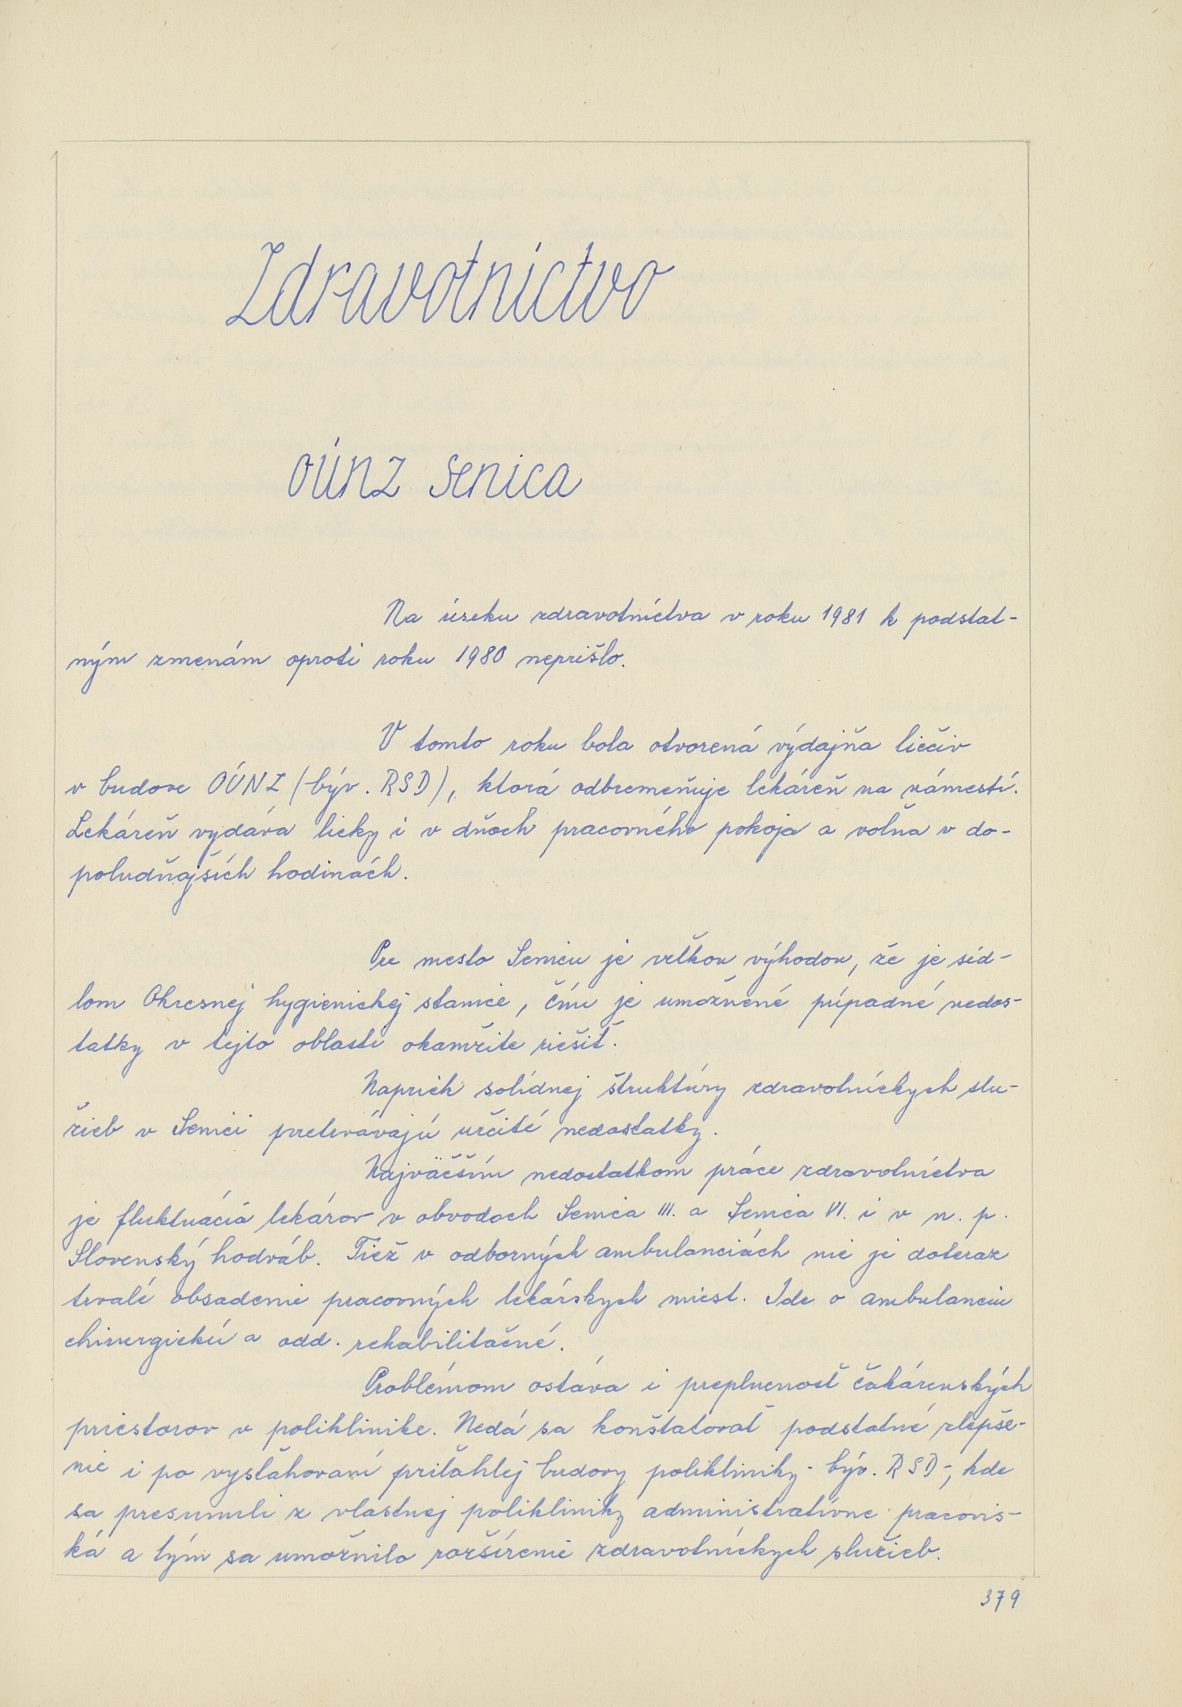 Zdravotníctvo
OÚNZ Senica
Na úseku zdravotníctva v roku 1981 k podstat-
ným zmenám oproti roku 1980 neprišlo.
V tomto roku bola otvorená výdajňa liečiv
v budove OÚNZ (býv. RSD), ktorá odbremeňuje lekáreň na námestí.
Lekáreň vydáva lieky i v dňoch pracovného pokoja a voľna v do-
poludňajších hodinách.
Pre mesto Senicu je veľkou výhodou, že je síd-
lom Okresnej hygienickej stanice, čím je umožnené prípadné nedos-
tatky v tejto oblasti okamžite riešiť.
Napriek solídnej štruktúry zdravotníckych slu-
žieb v Senici pretrvávajú určité nedostatky.
Najväčším nedostatkom práce zdravotníctva
je fluktuácia lekárov v obvodoch Senica III. a Senica VI. i v n. p.
Slovenský hodváb. Tiež v odborných ambulanciách nie je doteraz
trvalé obsadenie pracovných lekárskych miest. Ide o ambulanciu
chirurgickú a odd. rehabilitačné.
Problémom ostáva i preplnenosť čakárenských
priestorov v poliklinike. Nedá sa konštatovať podstatné zlepše-
nie i po vysťahovaní priľahlej budovy polikliniky - býv. RSD -, kde
sa presunuli z vlastnej polikliniky administratívne pracovis-
ká a tým sa umožnilo rozšírenie zdravotníckych služieb.
379